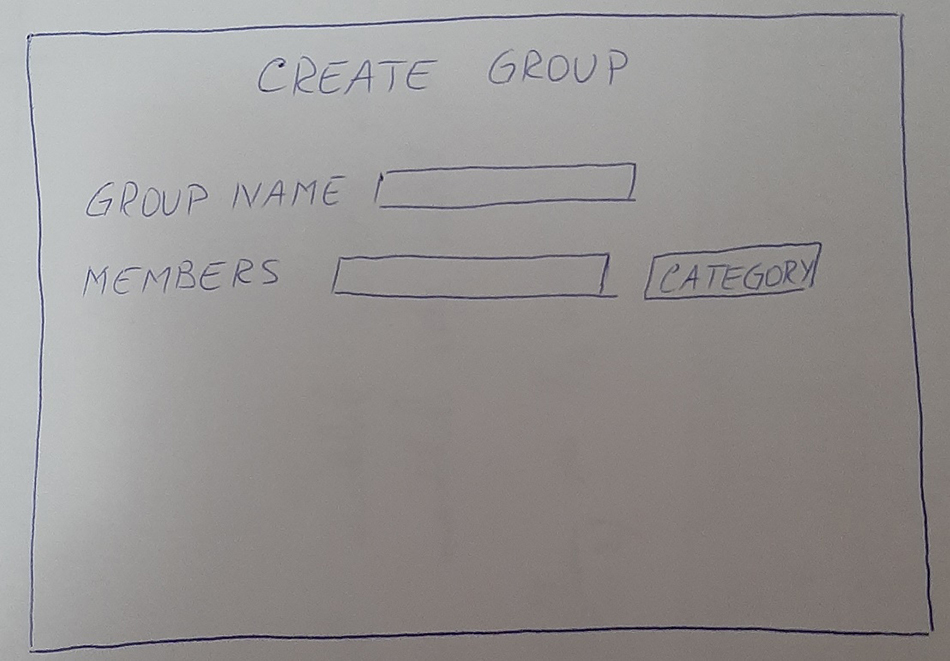 CREATE GROUP
GROUP NAME
MEMBERS CATEGORY